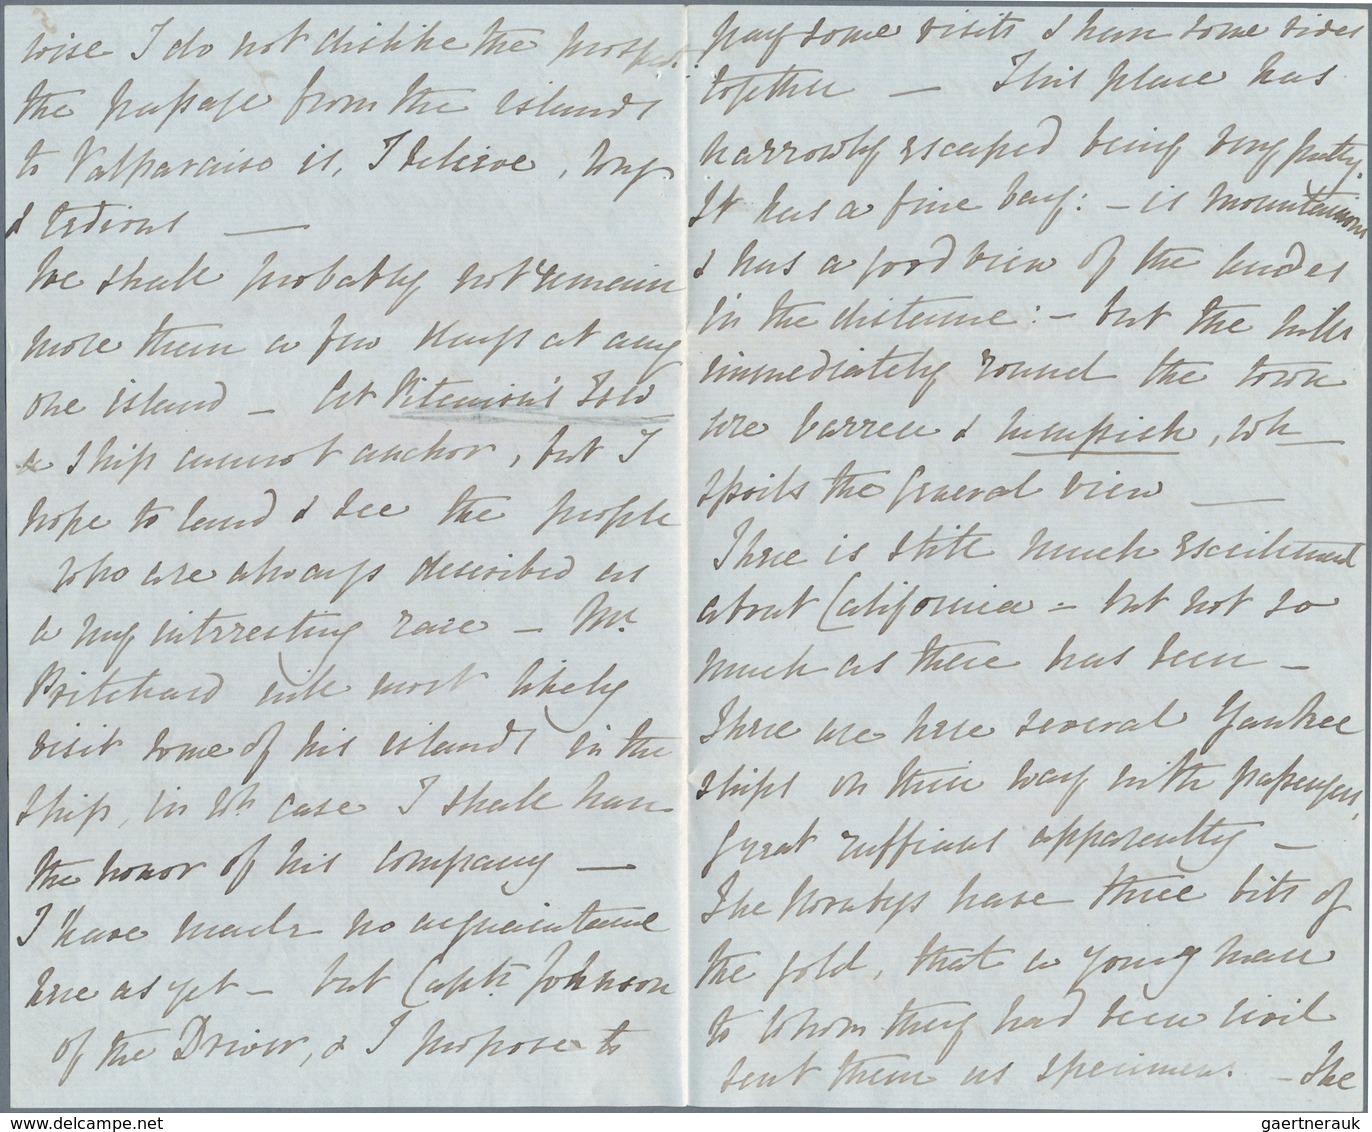 wise I do not dislike the prospect.
the passage from the islands
to Valparaiso is, I believe, long
& tedious —
We shall probably not remain
more than a few days at any
one island — At Pitcairn's Isld
a ship cannot anchor, but I
hope to land & see the people
who are always described as
a very interesting race — Mr
Pritchard will most likely
visit some of his islands in the
ship, in wh case I shall have
the honor of his company —
I have made no acquaintance
here as yet — but Captn Johnson
of the Driver, & I propose to
pay some visits & have some rides
together — This place has
narrowly escaped being very pretty.
It has a fine bay: — is mountainous
& has a good view of the Andes
in the distance: — but the hills
immediately round the town
are barren &, wh
spoils the general view —
There is still much excitement
about California — but not so
much as there has been —
There are here several Yankee
ships on their way with passengers,
great ruffians apparently —
The Hornbys have three bits of
the gold, that a young man
to whom they had been civil
sent them as specimens. — The
www.delcampe.net
gaertnerauk